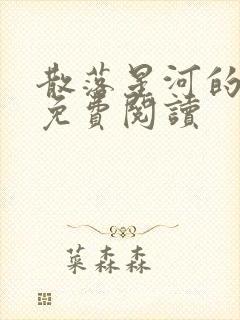 散落星河的
免費閱讀
菜森森